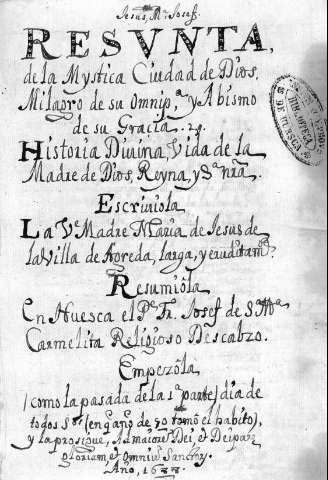 Jesus, Mª Josef.
RESVNTA,
de la Mystica Ciudad de Dios,
Milagro de su Omnipª y Abismo
de su Gracia.
Historia Diuina, Vida de la
Madre de Dios, Reyna, y Sª nrã.
Escriuiola
La Vᵉ Madre Maria de Jesus de
la Villa de Agreda, larga, y eruditamᵗᵉ
Resumiola
En Huesca el Pᵉ Fr. Josef de Sᵗᵃ
Carmelita Religioso Descalzo.
Empezola
(como la pasada de la 1ª parte) dia de
todos Sᵗᵒˢ (en q̃ año de 70 tomò el habito),
y la prosigue, Ad maiorẽ Dei, et Deiparę
gloriam, et Omniũ Sanctorũ.
Año, 16